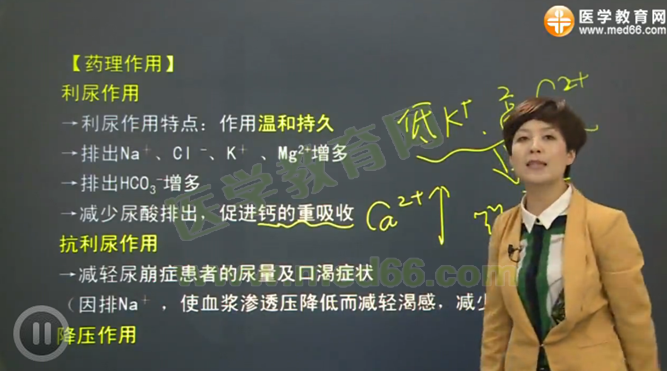 医学教育网
www.med66.com
【药理作用】
利尿作用
→利尿作用特点：作用温和持久
→排出Na⁺、Cl⁻、K⁺、Mg²⁺增多
→排出HCO₃⁻增多
→减少尿酸排出，促进钙的重吸收
抗利尿作用
→减轻尿崩症患者的尿量及口渴症状
（因排Na⁺，使血浆渗透压降低而减轻渴感，减少
降压作用
低K⁺、高Ca²⁺
Ca²⁺↑
医学教育网
www.med66.com